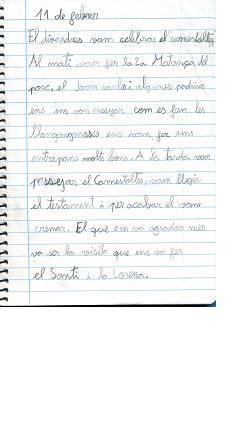 11 de febrer
El divendres vam celebrar el carnestoltes
Al matí vam fer la 2a Matança del
porc, el Joan carles i algunes padrines
ens van ensenyar com es fan les
llonganganisses ens vam fer uns
entrepans molt bons. A la tarda vam
passejar el Carnestoltes, vam llegir
el testament i per acabar el vam
cremar. El que em va agradar més
va ser la visita que ens va fer
el Santi i la Lorena.